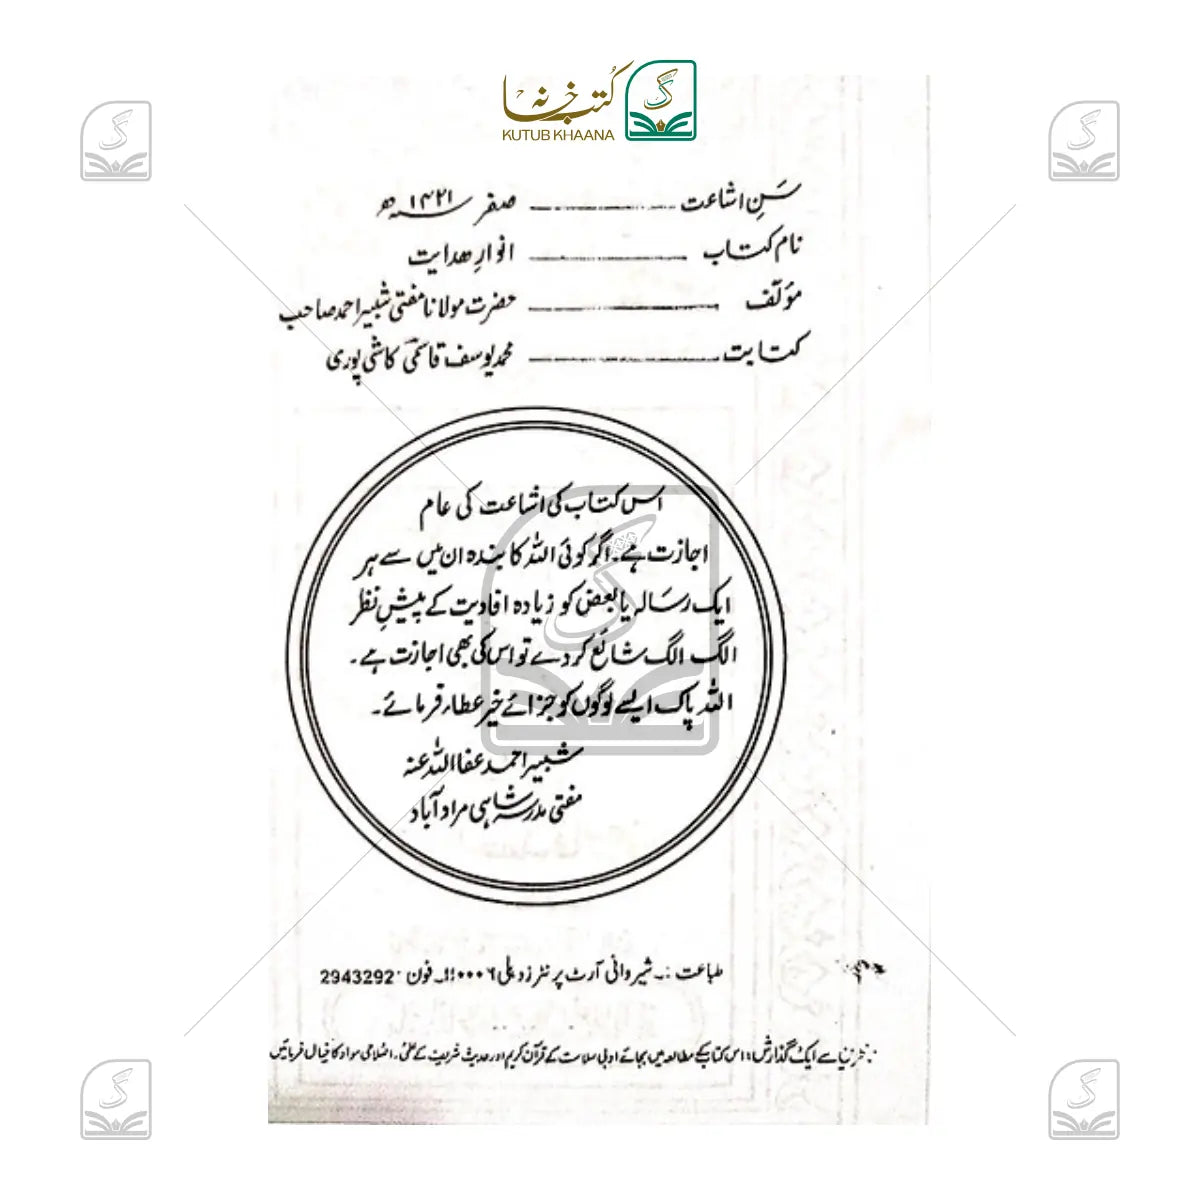 کتب خانہ
KUTUB KHAANA
سَنِ اشاعت ــــــــــ صفر ۱۴۲۱ھ
نام کتاب ــــــــــ انوارِ ھدایت
مؤلّف ــــــــــ حضرت مولانا مفتی شبیر احمد صاحب
کتابت ــــــــــ محمد یوسف قاسمی کاشی پوری
اس کتاب کی اشاعت کی عام
اجازت ہے۔ اگر کوئی اللہ کا بندہ ان میں سے ہر
ایک رسالہ یا بعض کو زیادہ افادیت کے پیشِ نظر
الگ الگ شائع کر دے تو اس کی بھی اجازت ہے۔
اللہ پاک ایسے لوگوں کو جزائے خیر عطاء فرمائے۔
شبیر احمد عفا اللہ عنہ
مفتی مدرسہ شاہی مراد آباد
طباعت :۔ شیروانی آرٹ پرنٹرز دہلی ۱۱۰۰۰۶۔ فون 2943292
سے ایک گذارش : اس کتاب کے مطالعہ میں بجائے ادبی سلاست کے قرآن کریم اور حدیث شریف کے علمی، اصلاحی مواد کا خیال فرمائیں